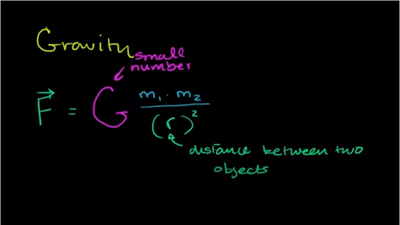 Gravity
small
number
F = G m₁ · m₂ / (r)²
distance between two
objects